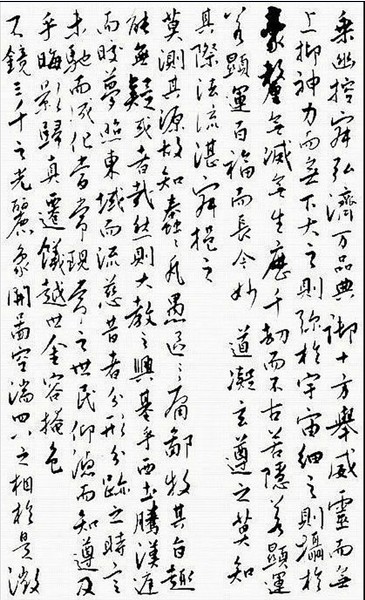 乘幽控寂弘濟万品典御十方舉威靈而無
上抑神力而無下大之則弥於宇宙細之則攝於
豪釐無滅無生歷千劫而不古若隱若顯運
若顯運百福而長今妙 道凝玄遵之莫知
其際法流湛寂挹之
莫測其源故知蠢々凡愚區々庸鄙投其旨趣
能無疑或者哉然則大教之興基乎西土騰漢庭
而皎夢照東域而流慈昔者分形分跡之時言
未馳而成化當常現常之世民仰德而知遵及
乎晦影歸真遷儀越世金容掩色
不鏡三千之光麗象開圖空端四八之相於是微